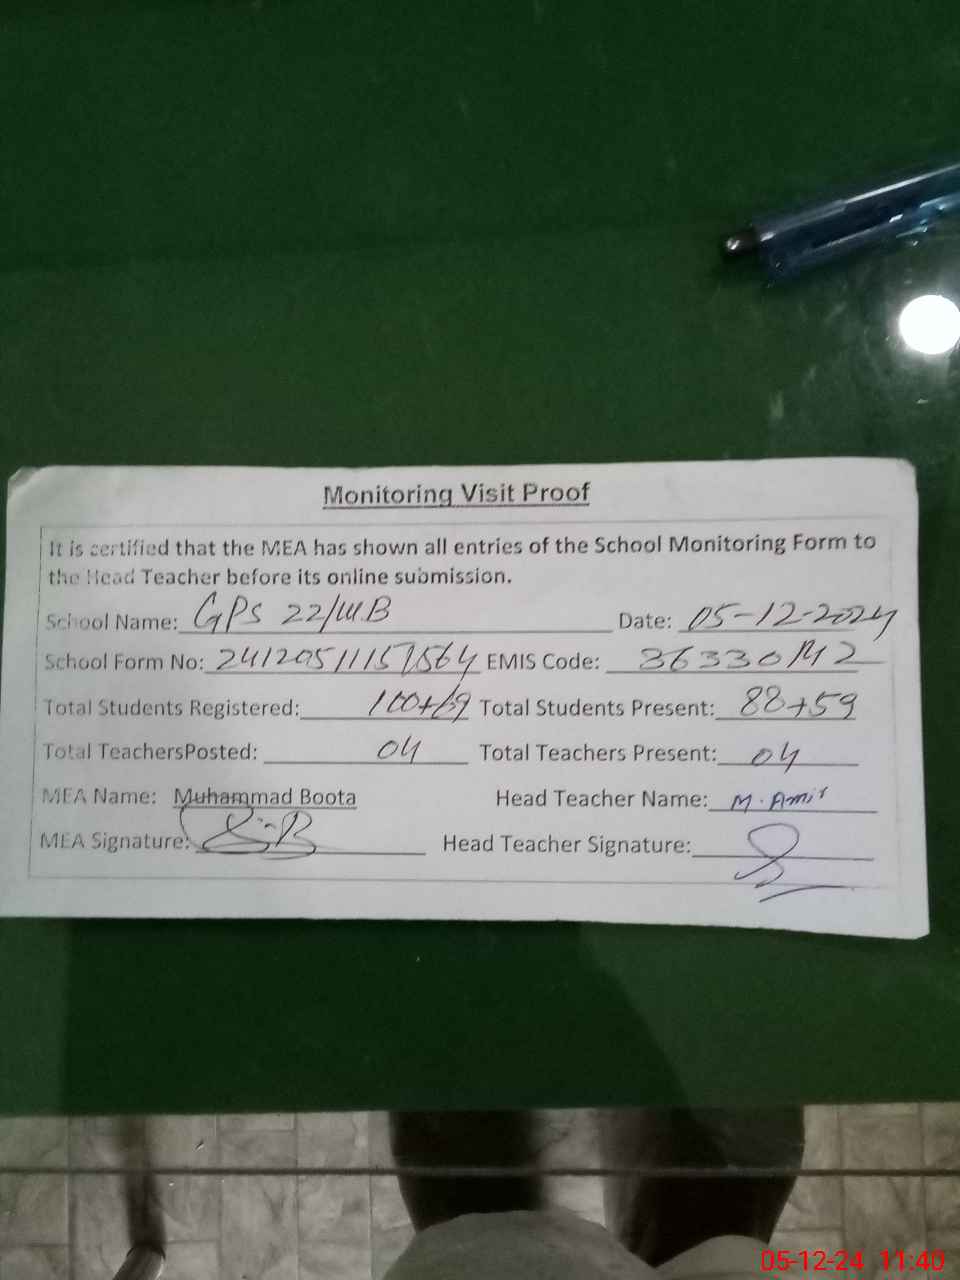 Monitoring Visit Proof
It is certified that the MEA has shown all entries of the School Monitoring Form to
the Head Teacher before its online submission.
School Name: GPS 22/WB Date: 05-12-2024
School Form No: EMIS Code:
Total Students Registered: 100+69 Total Students Present: 88+59
Total TeachersPosted: 04 Total Teachers Present: 04
MEA Name: Muhammad Boota Head Teacher Name: M. Amir
MEA Signature: Head Teacher Signature:
05-12-24 11:40